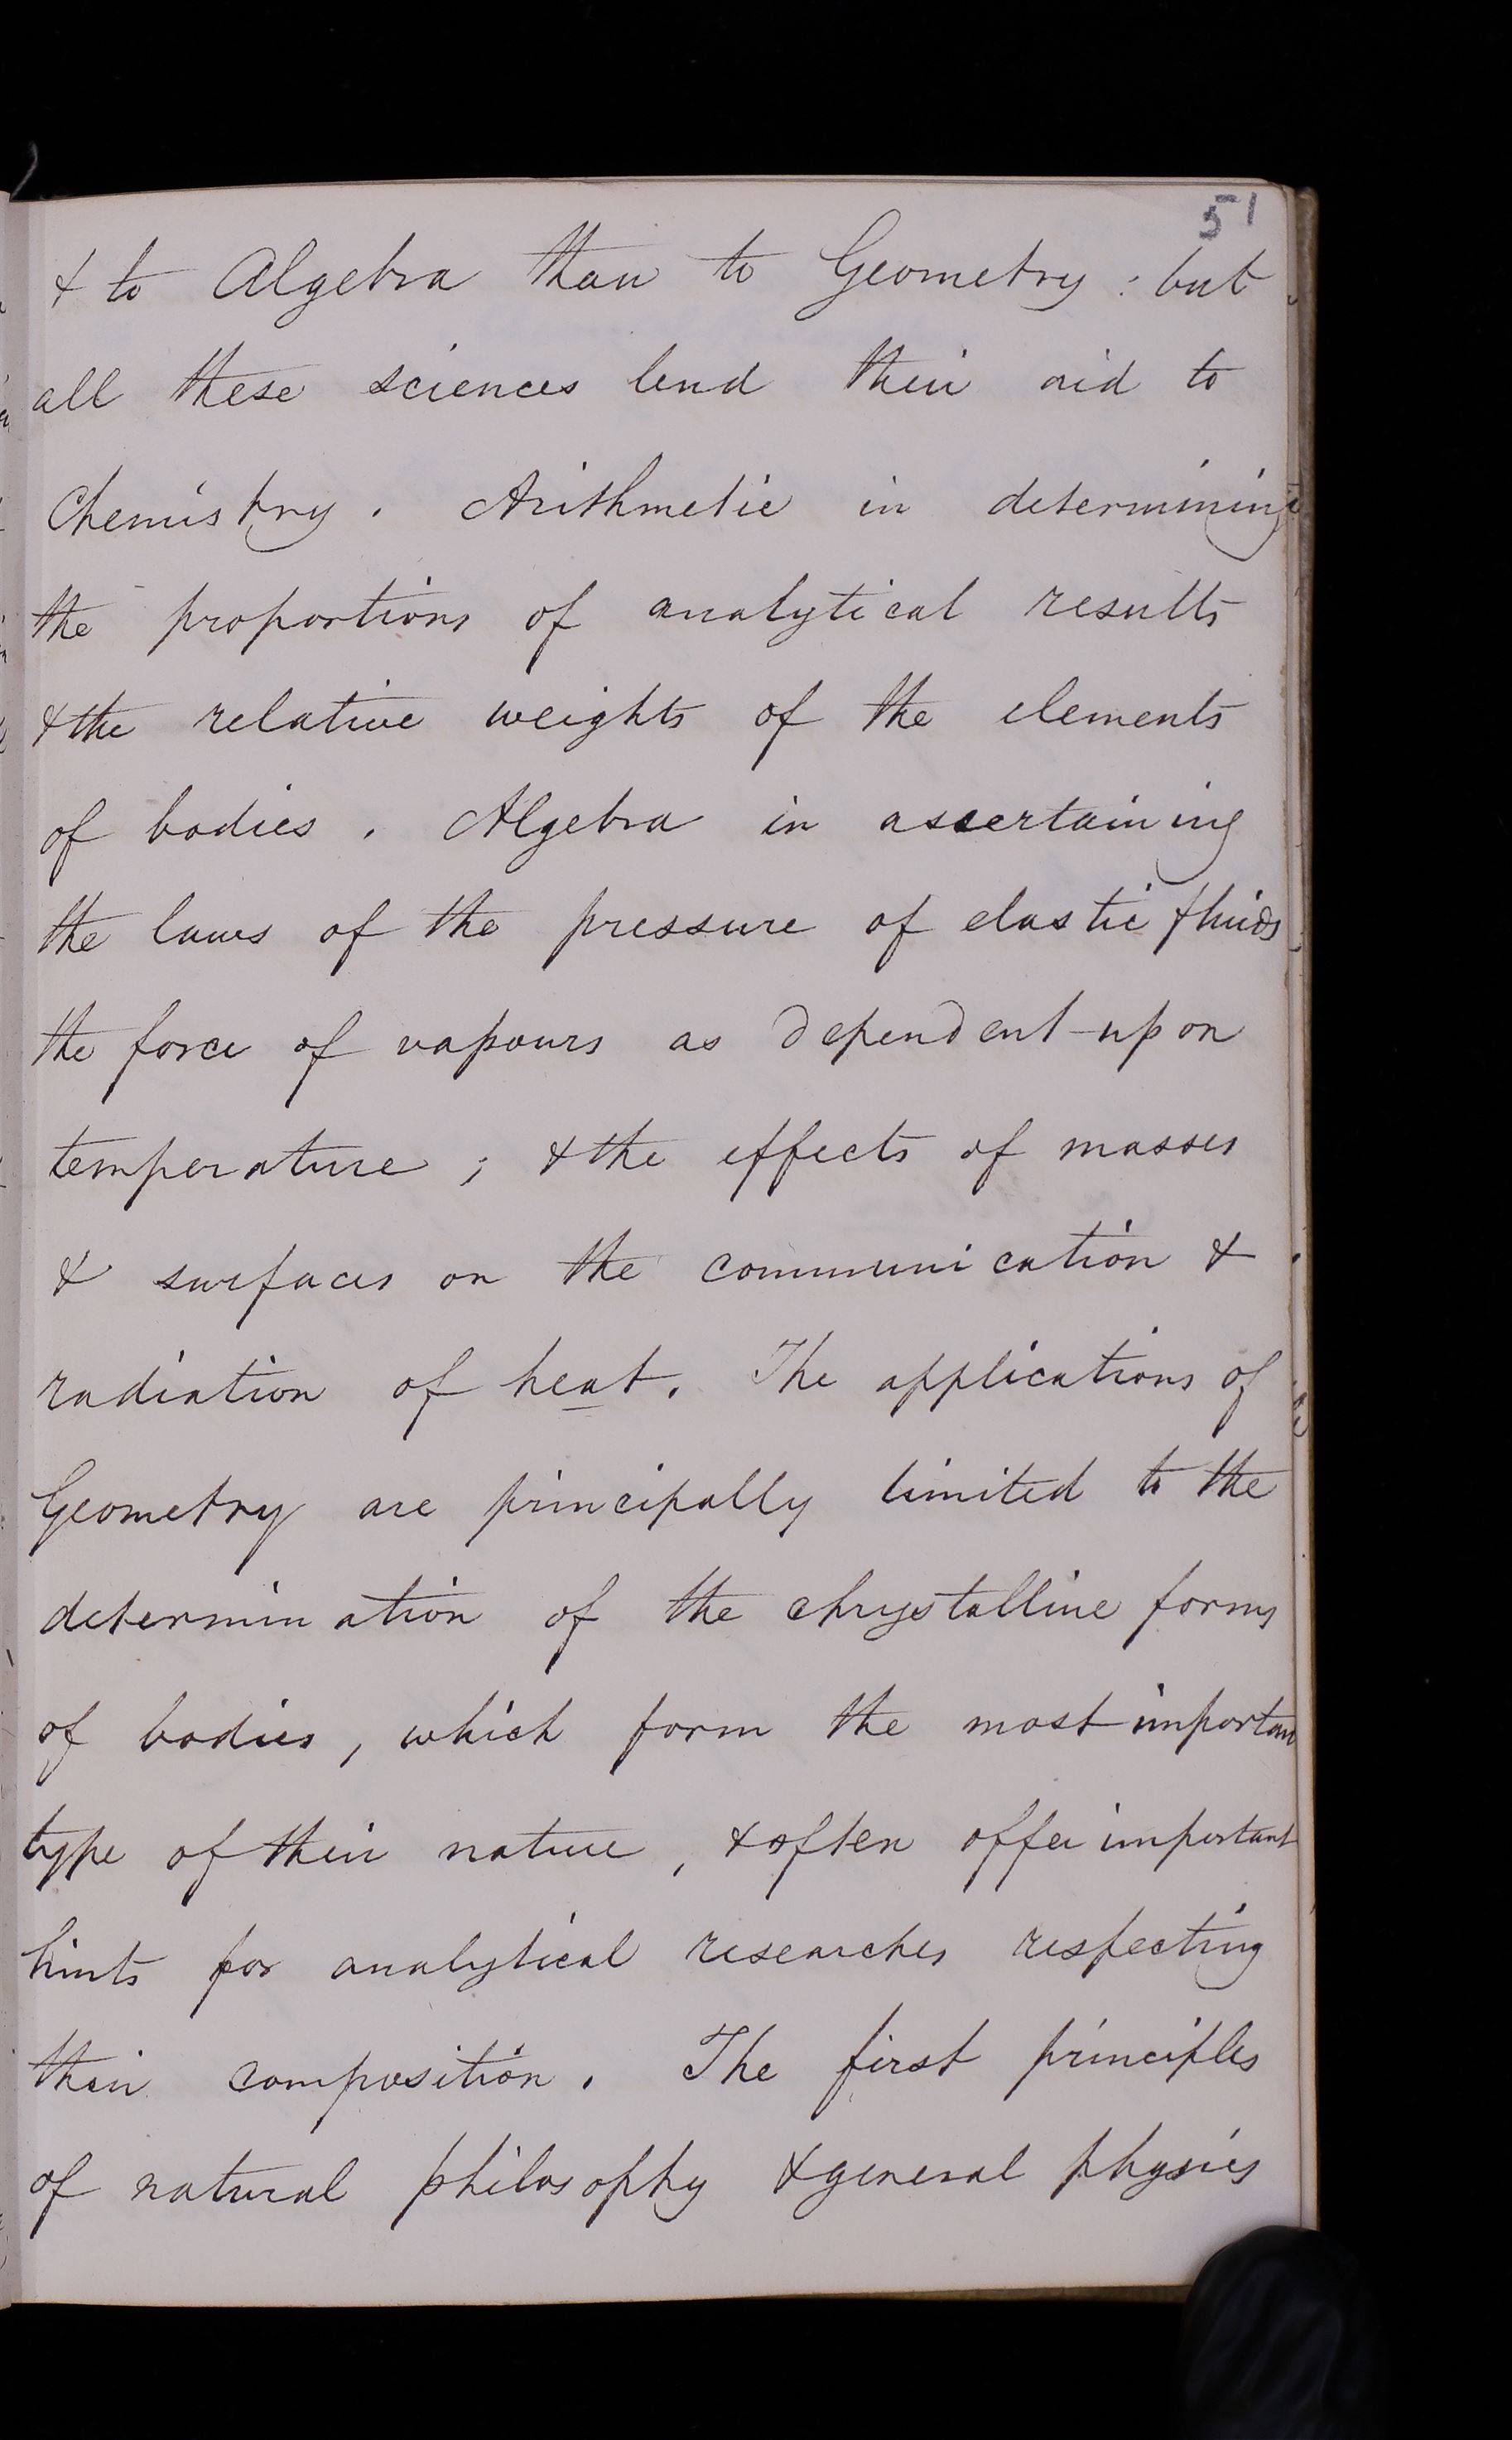 51
& to Algebra than to Geometry: but
all these sciences lend their aid to
Chemistry. Arithmetic in determining
the proportions of analytical results
& the relative weights of the elements
of bodies. Algebra in ascertaining
the laws of the pressure of elastic fluids
the force of vapours as dependent upon
temperature; & the effects of masses
& surfaces on the communication &
radiation of heat. The applications of
Geometry are principally limited to the
determination of the chrystalline forms
of bodies, which form the most importan
type of their nature, & often offer important
hints for analytical researches respecting
their composition. The first principles
of natural philosophy & general physics